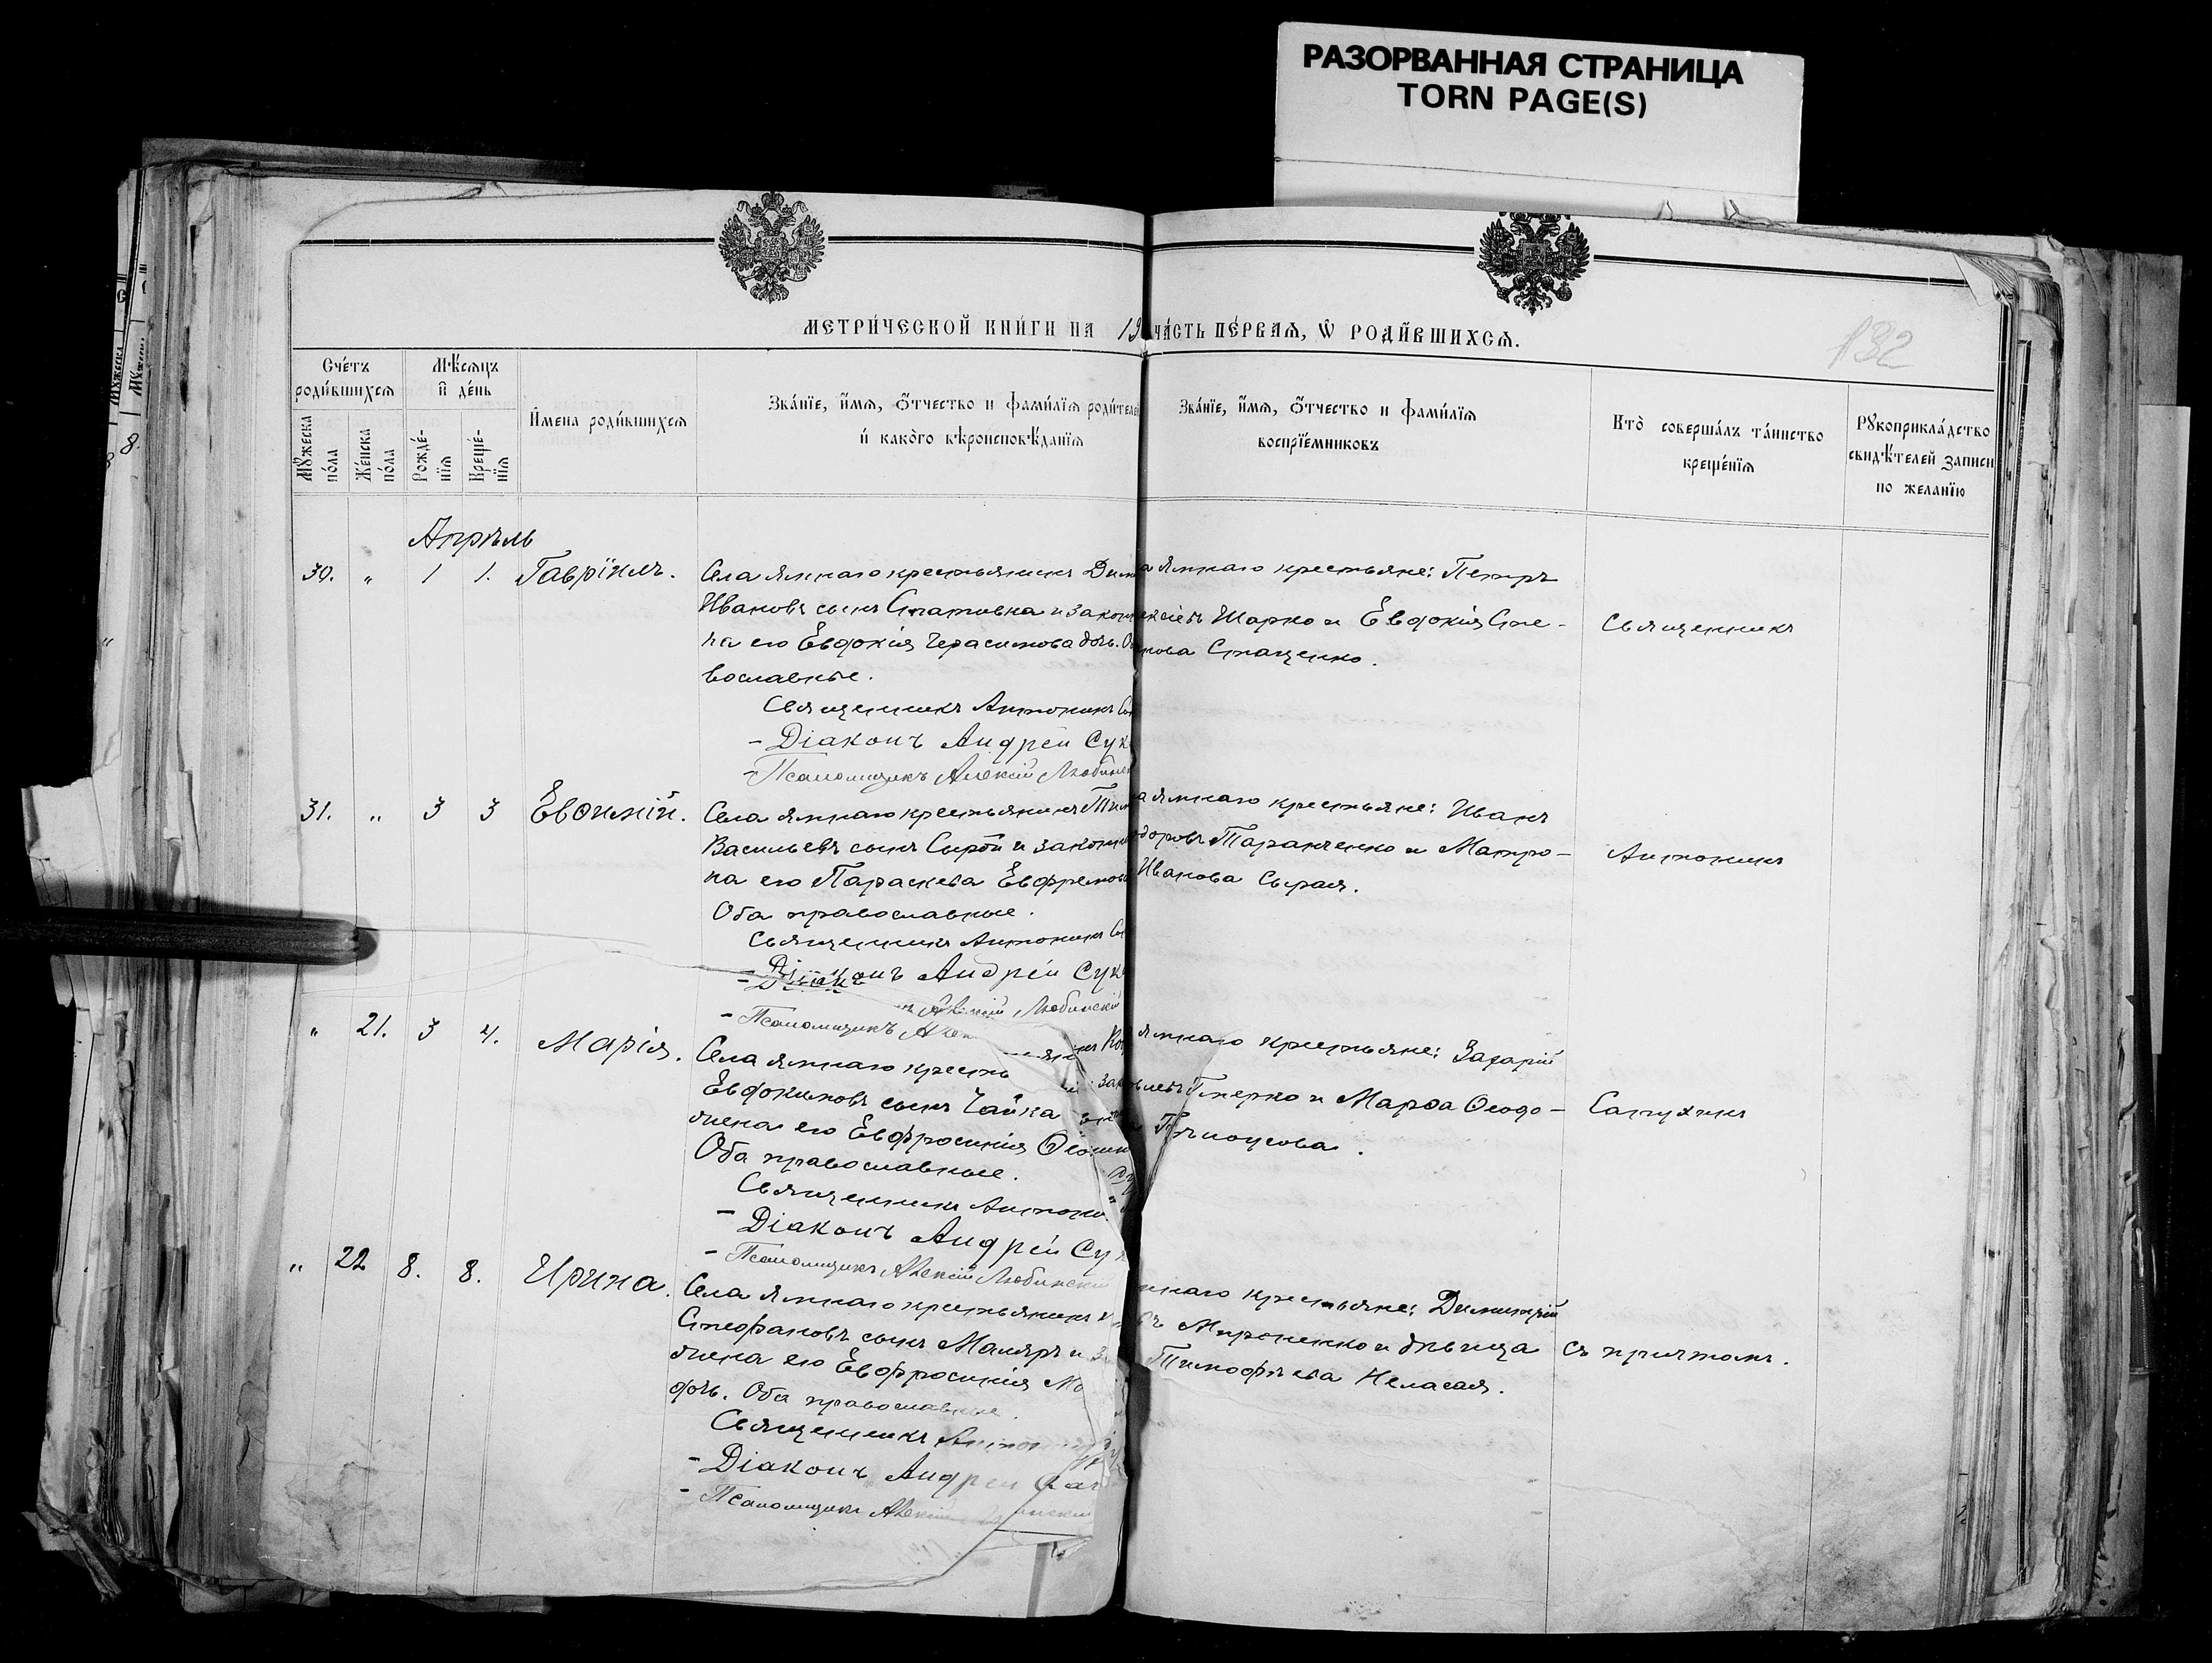 РАЗОРВАННАЯ СТРАНИЦА
TORN PAGE(S)
МЕТРИ́ЧЕСКОЙ КНИ́ГИ НА 19
ЧА́СТЬ ПЕ́РВАЯ, Ѡ РОДИ́ВШИХСЯ.
132
Сче́тъ
роди́вшихся
Мѣ́сяцъ
и де́нь
Имена роди́вшихся
Зва́нїе, и́мя, о́тчество и фами́лїя роди́теле
и како́го вѣроисповѣ́данїя
Мꙋ́жеска
по́ла
Же́нска
по́ла
Рожде́-
нїя
Креще́-
нїя
Зва́нїе, и́мя, о́тчество и фами́лїя
воспрїе́мниковъ
Кто̀ соверша́лъ та́инство
креще́нїя
Рꙋкоприкла́дство
свидѣ́телей записи
по жела́нїю
Апрѣль
30. " 1 1. Гавріилъ.
Села Ямнаго крестьянинъ Дим
Ивановъ сынъ и закон
на его Евдокія Герасимова дочь. О
вославные.
Священникъ Антонинъ Са
- Діаконъ Андрей Сук
- Псаломщикъ Алексій Любинск
а Ямнаго крестьяне: Петръ
ексіевъ Шарко и Евдокія Сте-
нова Стаценко.
Священникъ
31. " 3 3 Евѳимій.
Села Ямнаго крестьянинъ Тим
Васильевъ сынъ Сырой и законн
на его Параскева Евфремов
Оба православные.
Священникъ Антонинъ Са
- Діаконъ Андрей Сук
- Псаломщикъ Алексій Любинскій
а Ямнаго крестьяне: Иванъ
одоровъ Таранченко и Матро-
Иванова Сырая.
Антонинъ
" 21. 3 4. Марія.
Села Ямнаго кресть
Евдокимовъ сынъ Чайка
жена его Евфросинія
Оба православные.
Священникъ Антони
- Діаконъ Андрей Сук
- Псаломщикъ Алексій Любинскій
Ямнаго крестьяне: Захарій
и Марѳа Ѳеодо-
Сапухинъ
" 22 8. 8. Ирина.
Села Ямнаго крестьянинъ
Стефановъ сынъ Маляръ и з
жена его Евфросинія
дочь. Оба православные.
Священникъ Антон
- Діаконъ Андрей
- Псаломщикъ Алексій
мнаго крестьяне: Димитрій
въ Мироненко и дѣвица
Тимофѣева Неласая.
съ причтомъ.